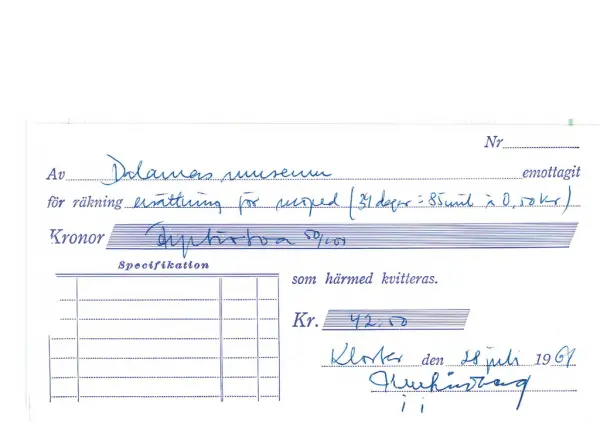 Nr
Av Dalarnas museum emottagit
för räkning ersättning för moped (34 dagar = 85 mil à 0,50 kr)
Kronor Fyrtiotvå 50/100
Specifikation
som härmed kvitteras.
Kr. 42:50
Kloster den 28 juli 1961